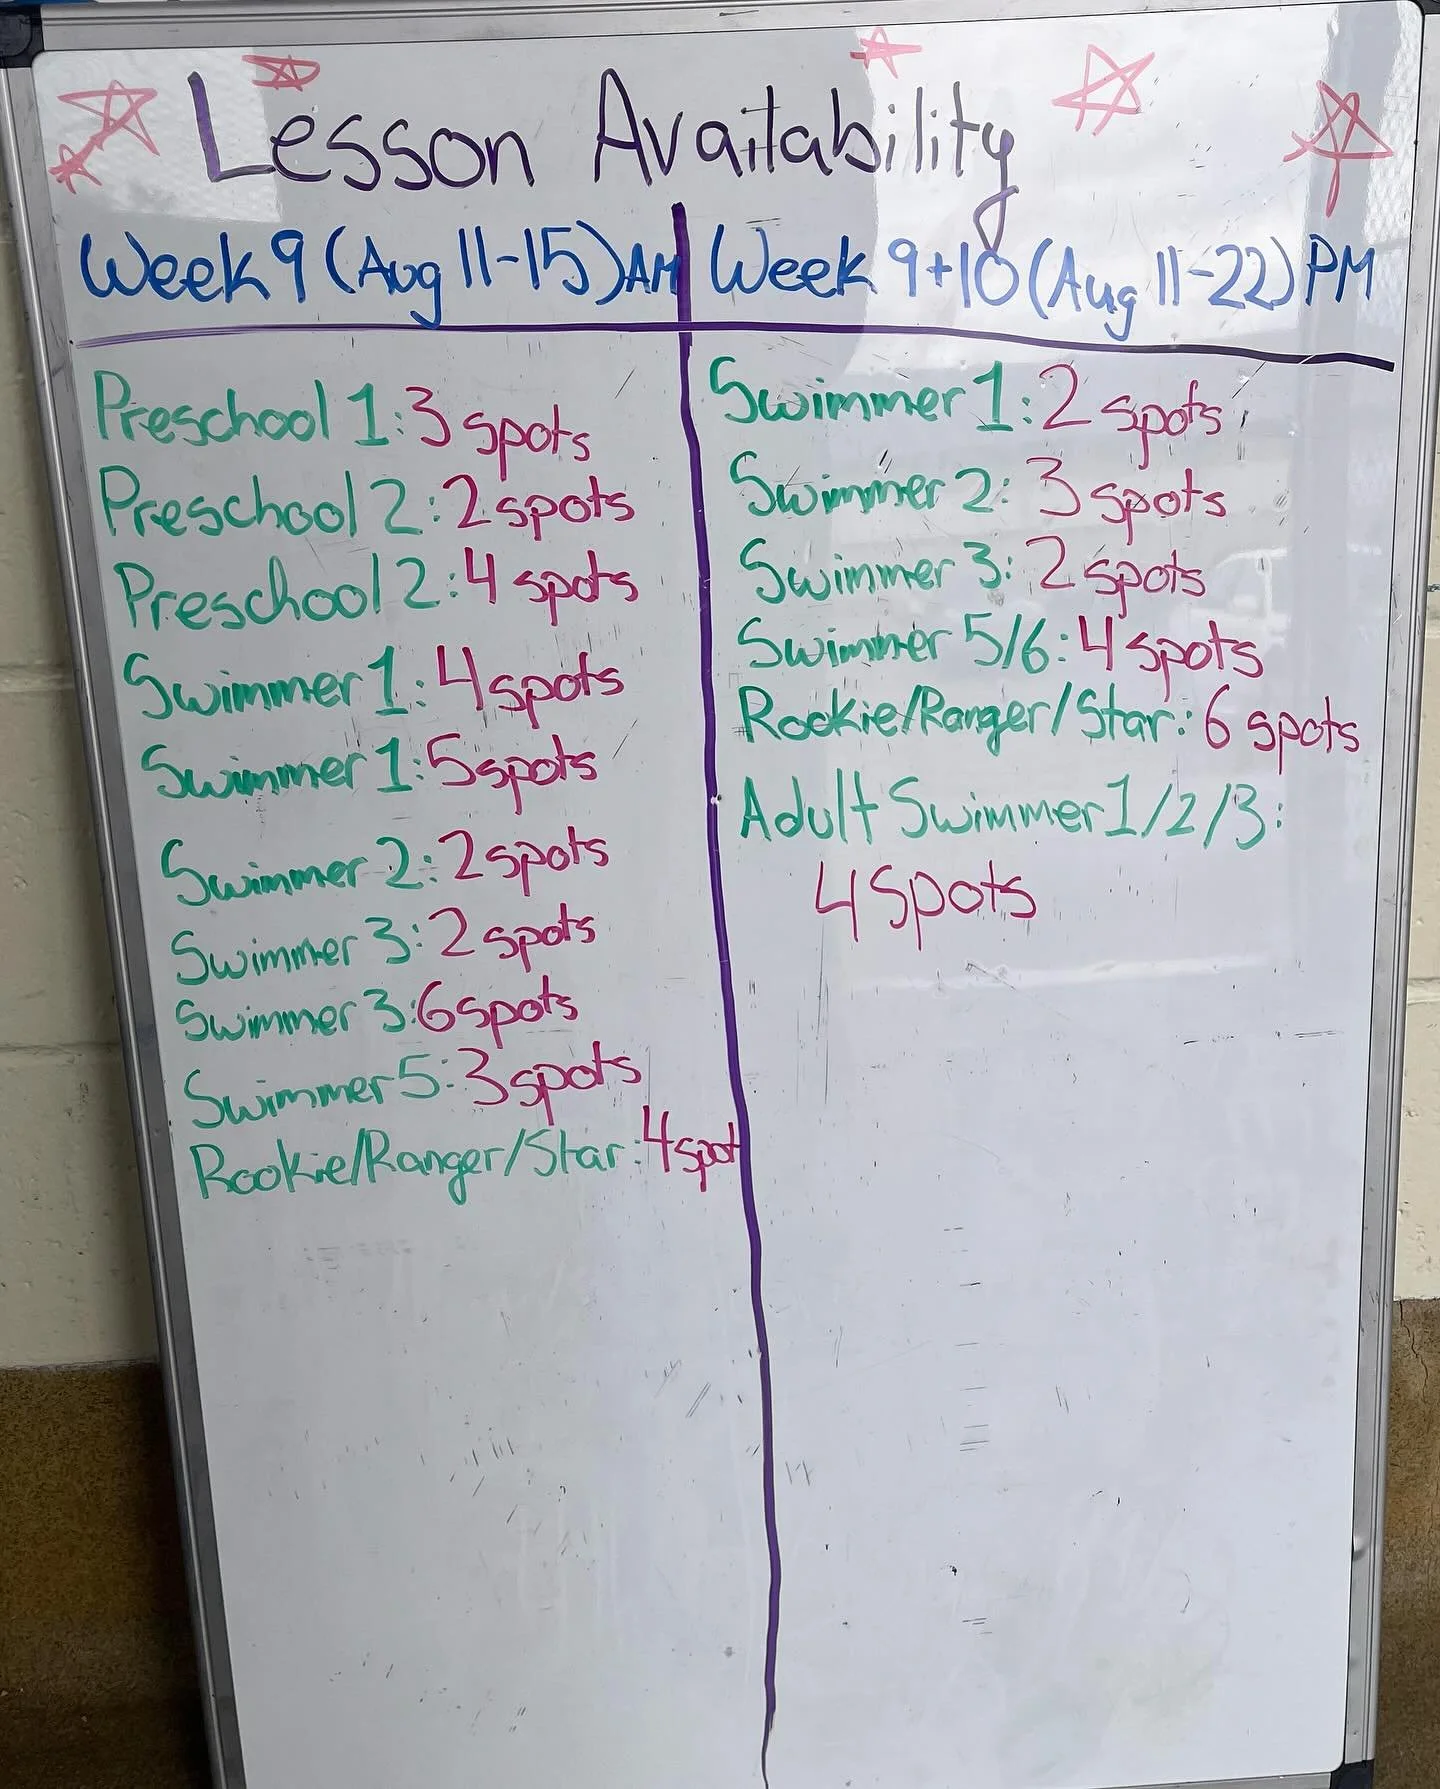 Lesson Availability
Week 9 (Aug 11-15) AM
Preschool 1: 3 spots
Preschool 2: 2 spots
Preschool 2: 4 spots
Swimmer 1: 4 spots
Swimmer 1: 5 spots
Swimmer 2: 2 spots
Swimmer 3: 2 spots
Swimmer 3: 6 spots
Swimmer 5: 3 spots
Rookie/Ranger/Star: 4 spot
Week 9+10 (Aug 11-22) PM
Swimmer 1: 2 spots
Swimmer 2: 3 spots
Swimmer 3: 2 spots
Swimmer 5/6: 4 spots
Rookie/Ranger/Star: 6 spots
Adult Swimmer 1/2/3:
4 spots